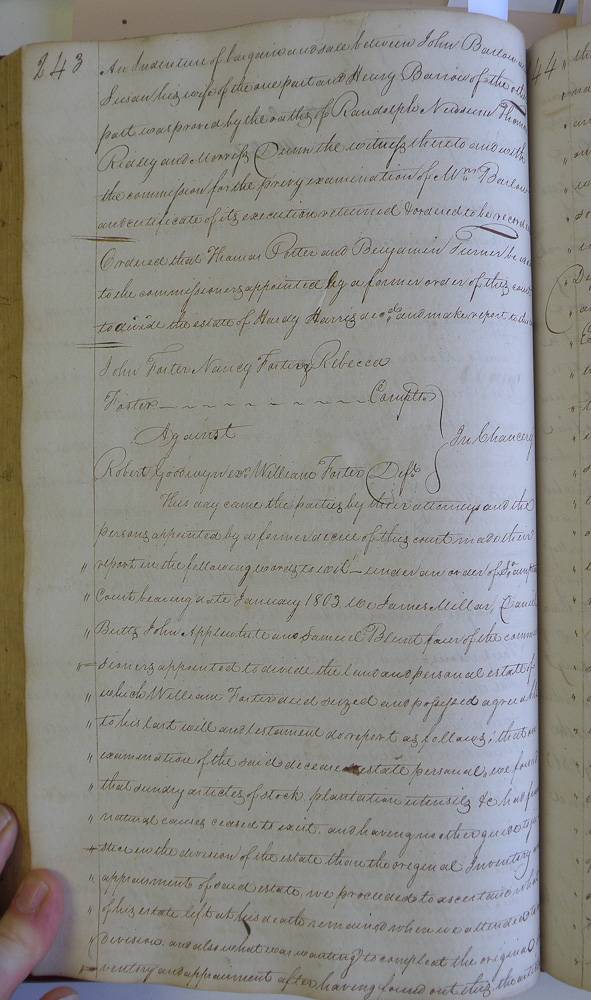 243
An Indenture of bargain and sale between John Barlow and
Susan his wife of the one part and Henry Barrow of the other
part was proved by the oaths of Randolph Newsum Thomas
Ridley and Morriss Dunn the witness thereto and with
the commission for the privy examination of Mrs. Barlow
and certificate of its execution returned & ordered to be recorded
Ordered that Thomas Potter and Benjamin Turner be
to the commissioners appointed by a former order of this court
to divide the estate of Hardy Harris decd. and make report to the
John Foster Nancy Foster & Rebecca
Foster Complts
Against In Chancery
Robert Goodwyn exr. William Foster Deft
This day came the parties by their attorneys and the
persons appointed by a former decree of this court made their
" report in the following words to wit — under an order of S.ampton
" Court bearing date January 1803 we James Millar, Daniel
" Butts John Applewhite and Samuel Blunt four of the commis
" sioners appointed to divide the land and personal estate of
" which William Foster died seized and possessed agreeable
" to his last will and testament do report as follows, that on
" examination of the said deceased estate personal, we found
" that sundry articles of stock, plantation utensils &c had from
" natural causes ceased to exist, and having no other guide to
" in the division of the estate than the original Inventory and
" appraisment of said estate, we proceeded to ascertain what
" of his estate left at his death remained when we attended to
" division, and also what was wanting to compleat the original In
" ventory and appraisment after having found out this, the
44